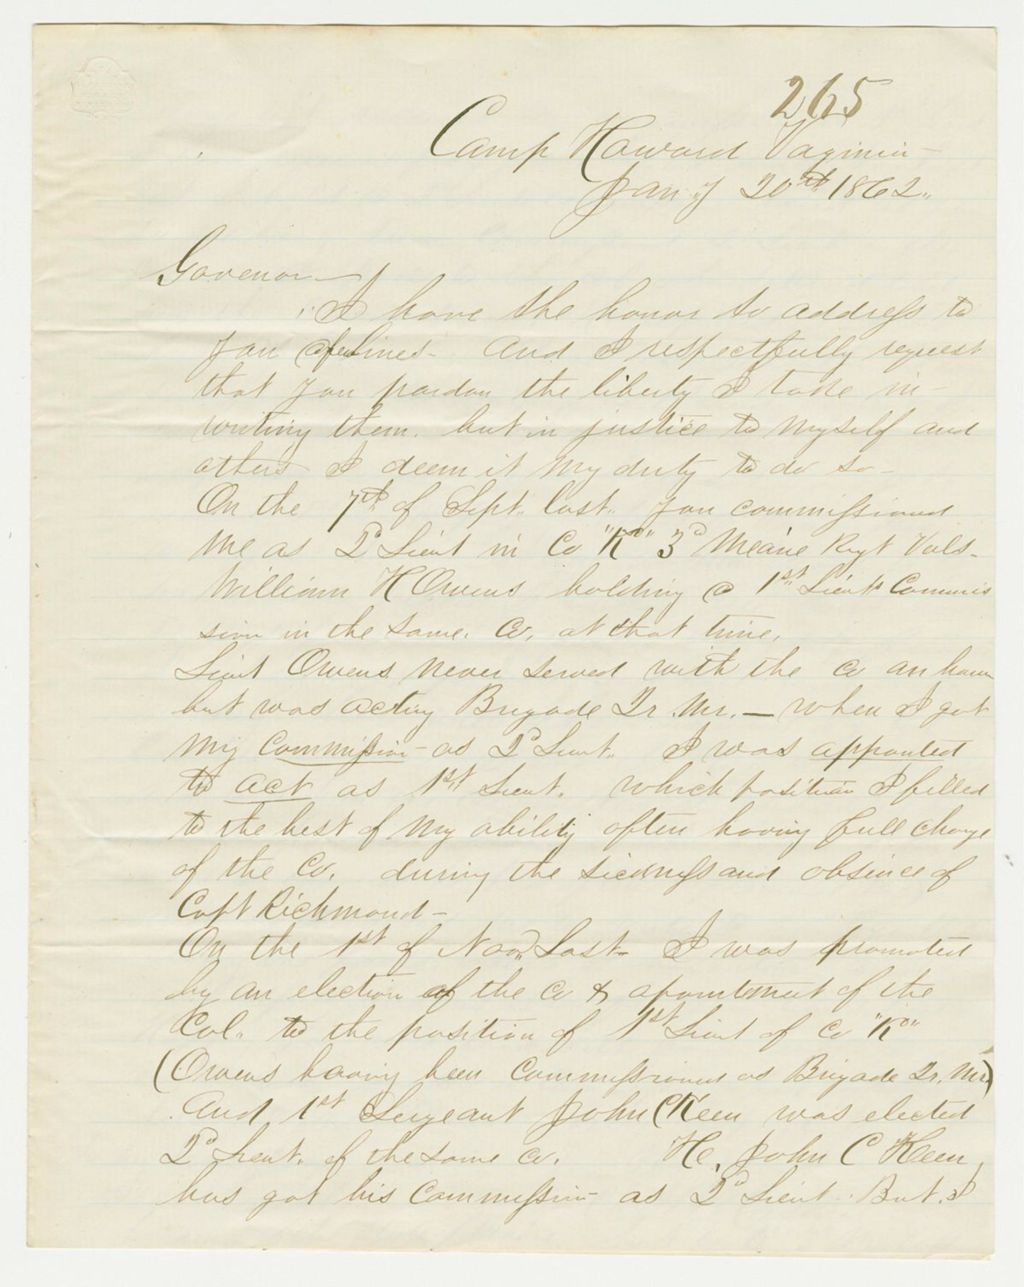 265
Camp Howard Virginia
Jany 20th 1862.
Govenor
I have the honor to address to
you a few lines - And I respectfully request
that you pardon the liberty I take in
writing them. but in justice to myself and
others I deem it my duty to do so -
On the 7th of Sept. last. you commissioned
me as 2d Lieut in Co "K" 3d Meane Regt Vols -
William H Owens holding a 1st Lieuts Commis
sion in the same. Co. at that time.
Lieut Owens never served with the Co an hour
but was acting Brigade Qr. Mr. — when I got
my commission - as 2d Lieut. I was appointed
to act as 1st Lieut. which position I filled
to the best of my ability often having full charge
of the Co. during the sickness and absence of
Capt Richmond -
On the 1st of Nov. Last - I was promoted
by an election of the Co & apointment of the
Col. to the position of 1st Lieut of Co "K"
(Owens having been Commissioned as Brigade Qr. Mr)
And 1st Sergeant John C Keen was elected
2d Lieut. of the same Co. He, John C Keen,
has got his Commission as 2d Lieut. But. I